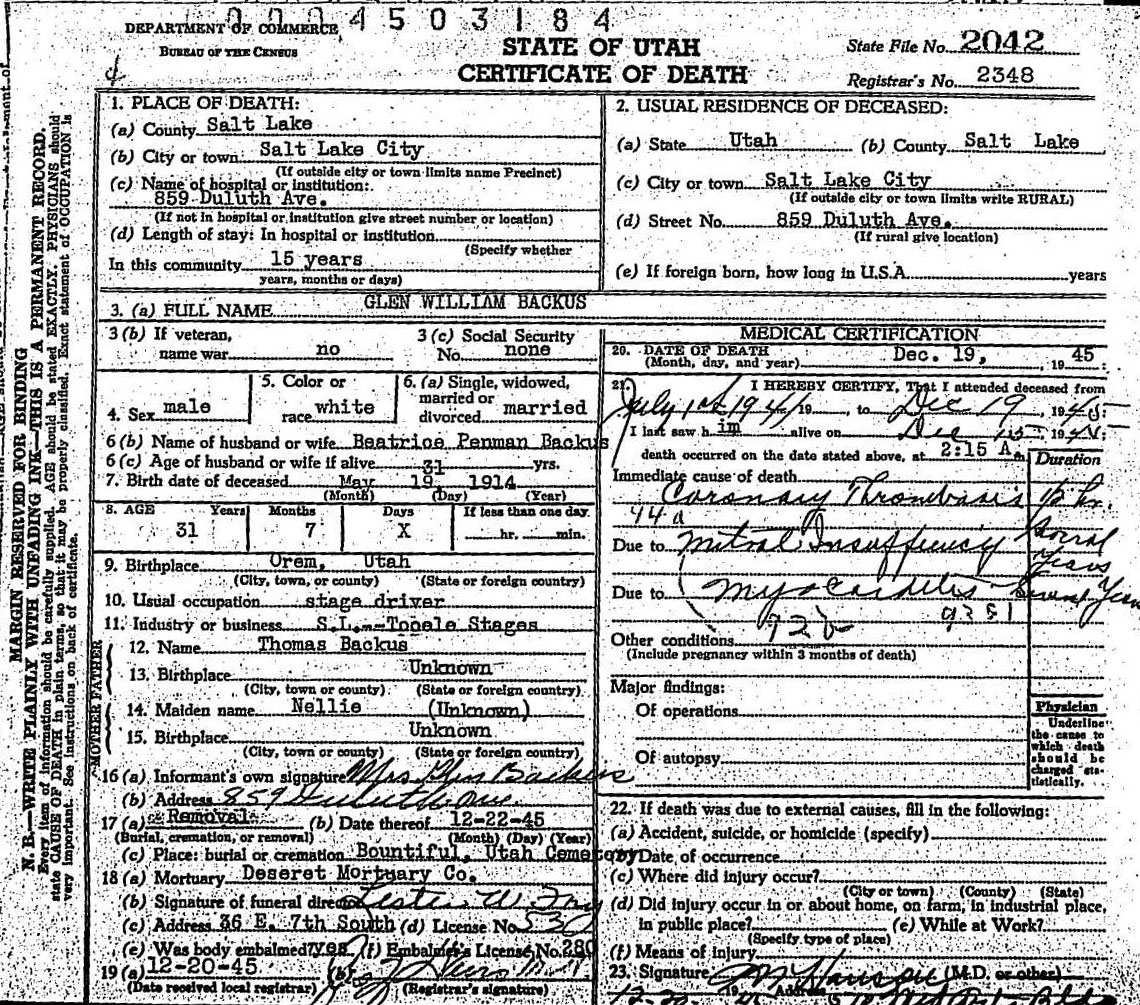 0004503184
DEPARTMENT OF COMMERCE
BUREAU OF THE CENSUS
STATE OF UTAH
CERTIFICATE OF DEATH
State File No. 2042
Registrar's No. 2348
MARGIN RESERVED FOR BINDING
N. B.—WRITE PLAINLY WITH UNFADING INK—THIS IS A PERMANENT RECORD.
Every item of information should be carefully supplied. AGE should be stated EXACTLY. PHYSICIANS should
state CAUSE OF DEATH in plain terms, so that it may be properly classified. Exact statement of OCCUPATION is
very important. See instructions on back of certificate.
1. PLACE OF DEATH:
(a) County Salt Lake
(b) City or town Salt Lake City
(If outside city or town limits name Precinct)
(c) Name of hospital or institution:
859 Duluth Ave.
(If not in hospital or institution give street number or location)
(d) Length of stay: In hospital or institution
(Specify whether
In this community 15 years
years, months or days)
2. USUAL RESIDENCE OF DECEASED:
(a) State Utah (b) County Salt Lake
(c) City or town Salt Lake City
(If outside city or town limits write RURAL)
(d) Street No. 859 Duluth Ave.
(If rural give location)
(e) If foreign born, how long in U.S.A. years
3. (a) FULL NAME GLEN WILLIAM BACKUS
3 (b) If veteran, name war no
3 (c) Social Security No. none
4. Sex male
5. Color or race white
6. (a) Single, widowed, married or divorced married
6 (b) Name of husband or wife Beatrice Penman Backus
6 (c) Age of husband or wife if alive 31 yrs.
7. Birth date of deceased May 19, 1914
(Month) (Day) (Year)
8. AGE Years Months Days If less than one day
31 7 X hr. min.
9. Birthplace Orem, Utah
(City, town, or county) (State or foreign country)
10. Usual occupation stage driver
11. Industry or business S.L.--Tooele Stages
FATHER
12. Name Thomas Backus
13. Birthplace Unknown
(City, town or county) (State or foreign country)
MOTHER
14. Maiden name Nellie (Unknown)
15. Birthplace Unknown
(City, town or county) (State or foreign country)
16 (a) Informant's own signature Mrs Glen Backus
(b) Address 859 Duluth Ave.
17 (a) Removal (b) Date thereof 12-22-45
(Burial, cremation, or removal) (Month) (Day) (Year)
(c) Place: burial or cremation Bountiful, Utah Cemetery
18 (a) Mortuary Deseret Mortuary Co.
(b) Signature of funeral director Lester W.
(c) Address 36 E. 7th South (d) License No 530
(e) Was body embalmed? yes (f) Embalmer's License No. 280
19 (a) 12-20-45 (b)
(Date received local registrar) (Registrar's signature)
MEDICAL CERTIFICATION
20. DATE OF DEATH
(Month, day, and year) Dec. 19, 1945
21. I HEREBY CERTIFY, That I attended deceased from
July 1st 1941 19 , to Dec 19, 1945
I last saw him alive on Dec 19
death occurred on the date stated above, at 2:15 A. m. Duration
Immediate cause of death
Coronary Thrombosis 1/2 hr.
94 a
Due to Mitral Insuffency Several Years
Due to Myocarditis Several Years
92 b
Other conditions
(Include pregnancy within 3 months of death)
Major findings:
Of operations
Of autopsy
Physician
Underline the cause to which death should be charged statistically.
22. If death was due to external causes, fill in the following:
(a) Accident, suicide, or homicide (specify)
(b) Date of occurrence
(c) Where did injury occur?
(City or town) (County) (State)
(d) Did injury occur in or about home, on farm, in industrial place,
in public place? (e) While at Work?
(Specify type of place)
(f) Means of injury
23. Signature (M.D. or other)
Address